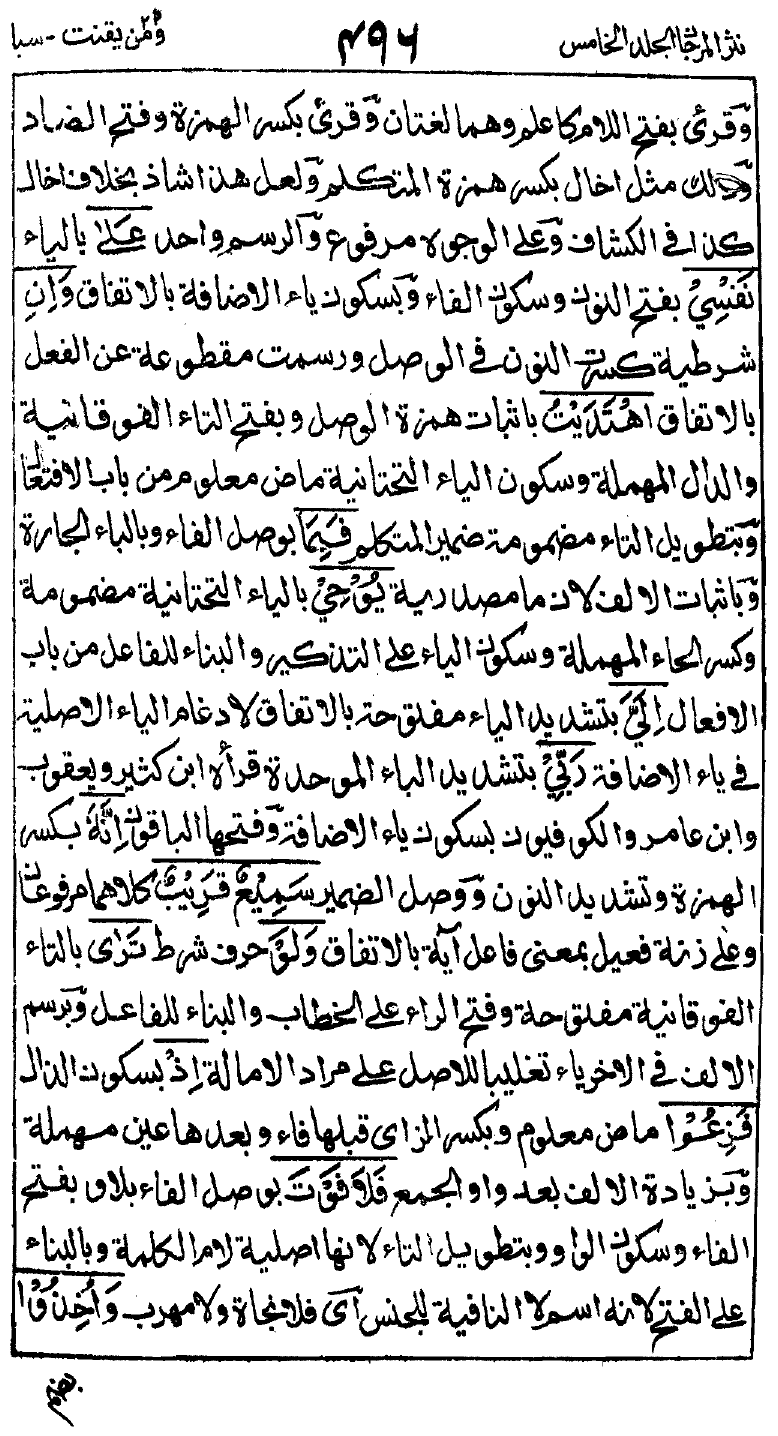 نثر المرجان المجلد الخامس
٤٩٦
ومن يقنت ٢٢ - سبا
وقرئ بفتح اللام كاعلم وهما لغتان وقرئ بكسر الهمزة وفتح الضاد
وذلك مثل اخال بكسر همزة المتكلم ولعل هذا شاذ بخلاف اخال
كذا فى الكشاف وعلى الوجوه مرفوع والرسم واحد عَلىٰ بالياء
نَفْسِيْ بفتح النون وسكون الفاء وبسكون ياء الاضافة بالاتفاق وَاِنِ
شرطية كسرت النون فى الوصل ورسمت مقطوعة عن الفعل
بالاتفاق اهْتَدَيْتُ باثبات همزة الوصل وبفتح التاء الفوقانية
والدال المهملة وسكون الياء التحتانية ماض معلوم من باب الافتعال
وبتطويل التاء مضمومة ضمير المتكلم فَبِمَا بوصل الفاء وبالباء الجارة
وباثبات الالف لان ما مصدرية يُوْحِيْ بالياء التحتانية مضمومة
وكسر الحاء المهملة وسكون الياء على التذكير والبناء للفاعل من باب
الافعال اِلَيَّ بتشديد الياء مفتوحة بالاتفاق لادغام الياء الاصلية
فى ياء الاضافة رَبِّيْ بتشديد الباء الموحدة قرأه ابن كثير ويعقوب
وابن عامر والكوفيون بسكون ياء الاضافة وفتحها الباقون اِنَّهٗ بكسر
الهمزة وتشديد النون ووصل الضمير سَمِيْعٌ قَرِيْبٌ كلاهما مرفوعان
وعلى زنة فعيل بمعنى فاعل آية بالاتفاق وَلَوْ حرف شرط تَرٰى بالتاء
الفوقانية مفتوحة وفتح الراء على الخطاب والبناء للفاعل وبرسم
الالف فى الاخر ياء تغليبا للاصل على مراد الامالة اِذْ بسكون الذال
فَزِعُوْا ماض معلوم وبكسر الزاى قبلها فاء وبعدها عين مهملة
وبزيادة الالف بعد واو الجمع فَلَا فَوْتَ بوصل الفاء بلا وبفتح
الفاء وسكون الواو وبتطويل التاء لانها اصلية لام الكلمة وبالبناء
على الفتح لانه اسم لا النافية للجنس اى فلا نجاة ولا مهرب وَاُخِذُوْا
بضم